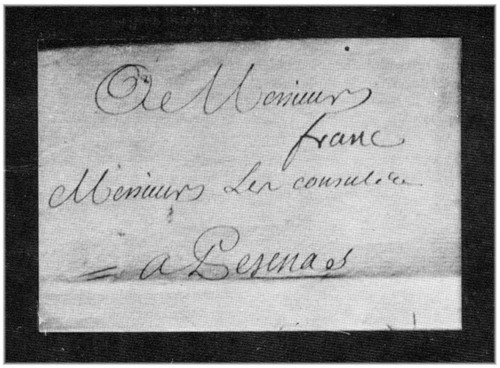 A Messieurs
franc
Messieurs Les consuls
a Pesenas